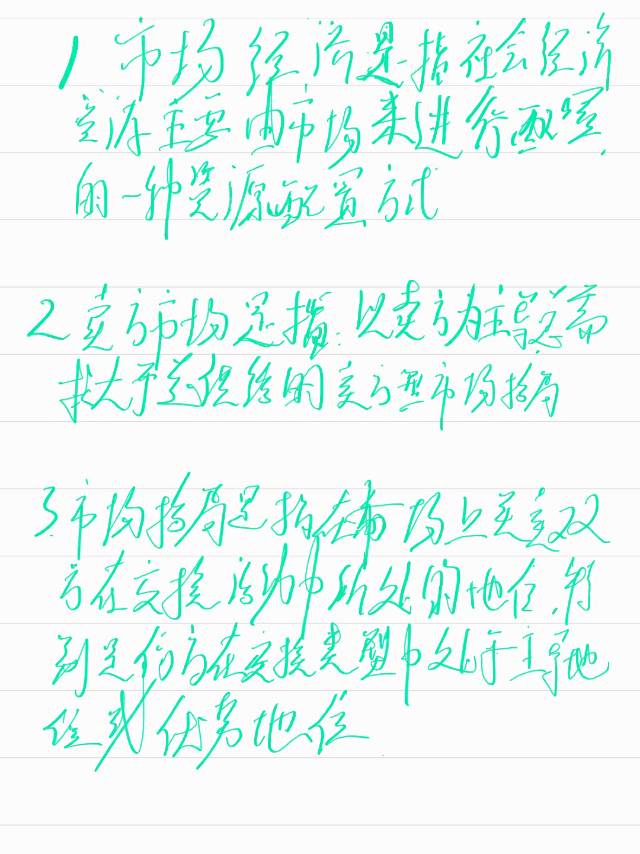 1 市场经济是指社会经济
资源主要由市场来进行配置
的一种资源配置方式
2 卖方市场是指:以卖方为主导总需
求大于总供给的卖方型市场格局
3.市场格局是指在市场上买卖双
方在交换活动中所处的地位,特
别是何方在交换类型中处于主导地
位或优势地位